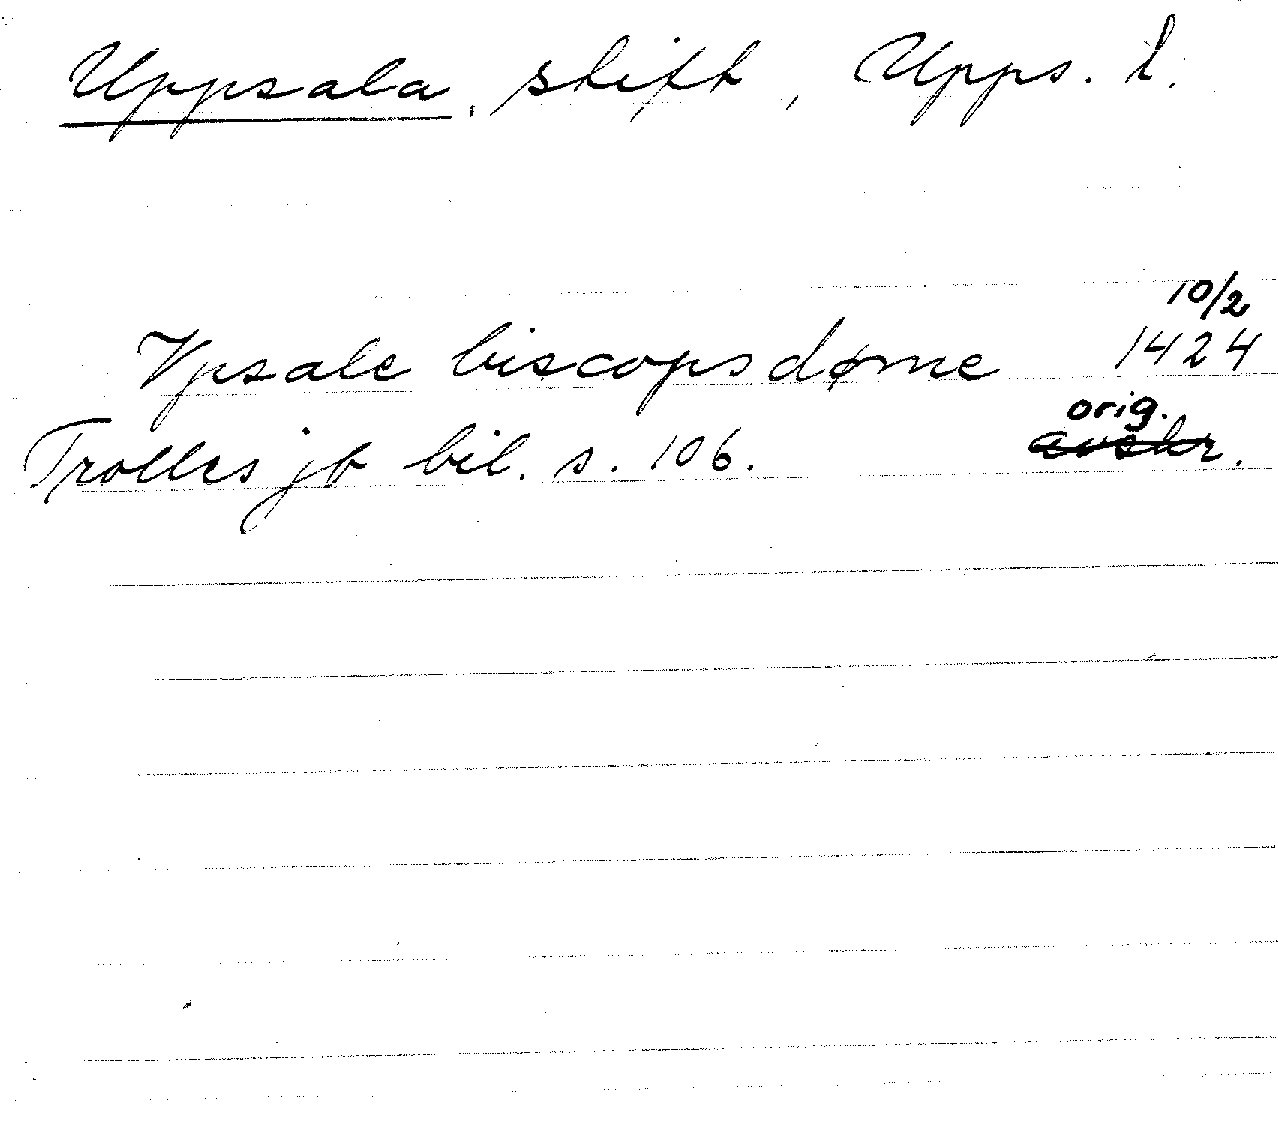 Uppsala, stift, Upps. l.
10/2
Vpsale biscopsdøme 1424
orig.
Trolles jb bil. s. 106. avskr.